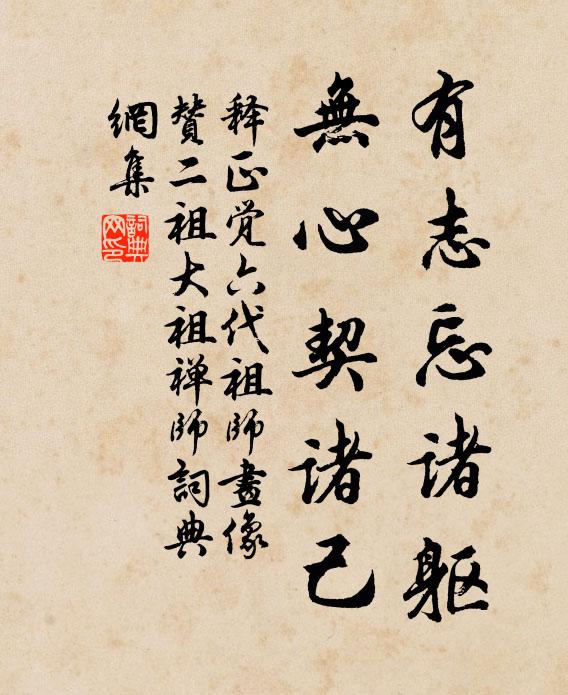 有志忘诸躯
無心契诸己
释正觉六代祖师畫像
赞二祖大祖禅师詞典
網集
詞典网印